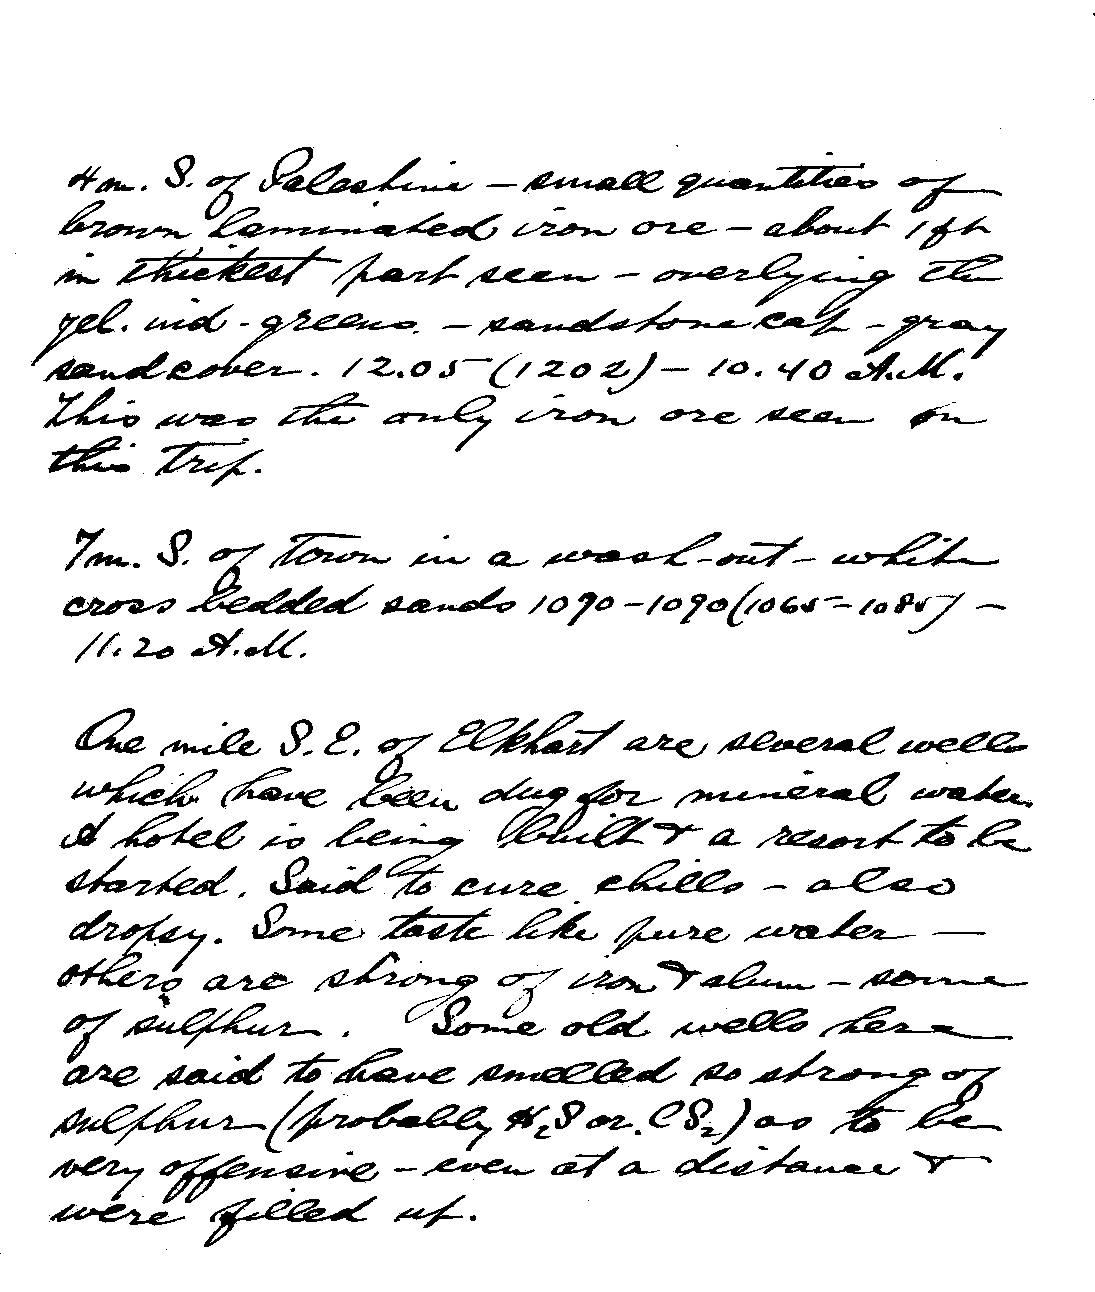 4 m. S. of Palestine - small quantities of
brown laminated iron ore - about 1 ft
in thickest part seen - overlying the
yel. ind - greens. - sandstone cap - gray
sand cover. 12.05 (1202) - 10.40 A.M.
This was the only iron ore seen on
this trip.
7 m. S. of town in a wash-out - white
cross bedded sands 1090 - 1090 (1065 - 1085) -
11.20 A.M.
One mile S.E. of Elkhart are several wells
which have been dug for mineral water.
A hotel is being built & a resort to be
started. Said to cure chills - also
dropsy. Some taste like pure water -
others are strong of iron & alum - some
of sulphur. Some old wells here
are said to have smelled so strong of
sulphur (probably H₂S or CS₂) as to be
very offensive - even at a distance &
were filled up.